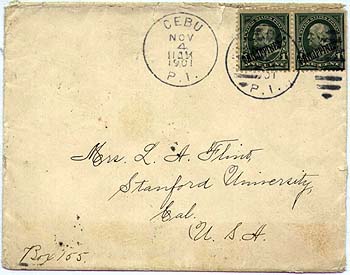 CEBU
NOV
4
11AM
1901
P. I.
P. I.
Mrs. L. A. Flint,
Stanford University,
Cal.
U. S. A.
Box 155.